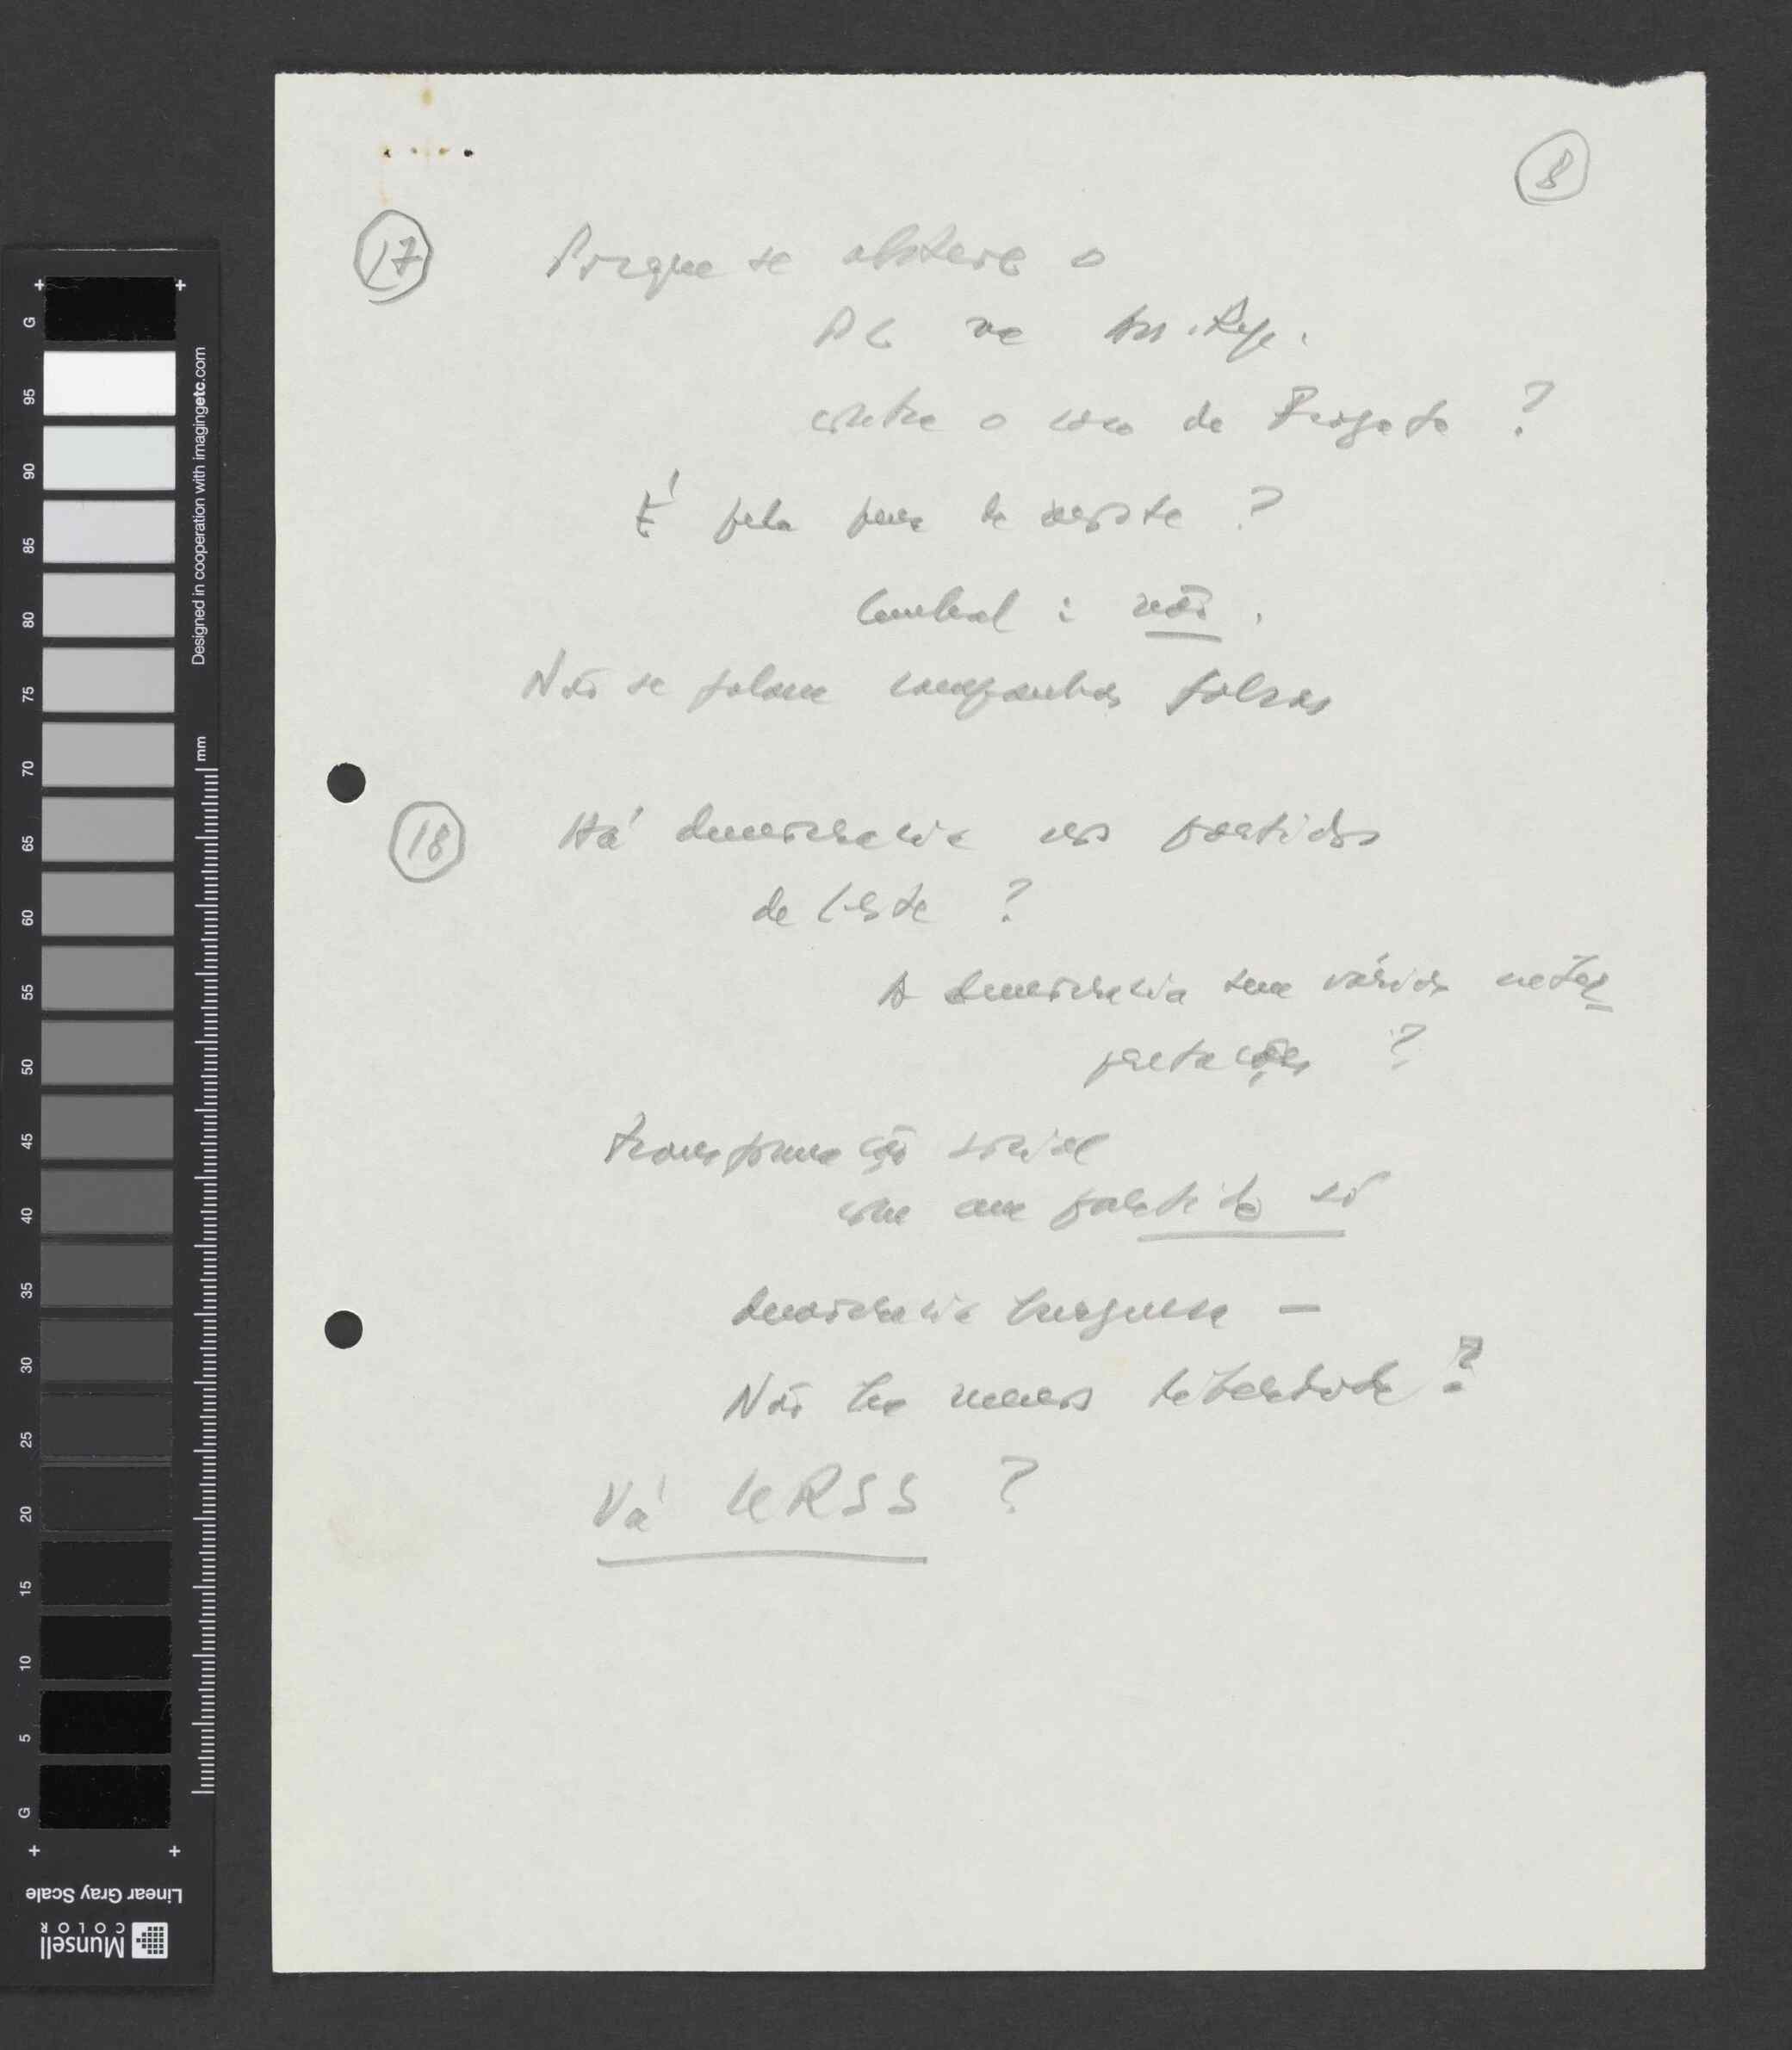 8
17 Porque se absteve o
PC na Ass. Rep.
contra o caso da Fragata ?
É pela pena de morte ?
Cunhal : não .
Não se falam campanhas falsas
18 Há democracia nos partidos
de Leste ?
A democracia tem várias inter
pretações ?
transformação social
com um partido só
democracia burguesa —
Não há menos liberdade ?
Vá URSS ?
G
95
90
85
80
75
70
65
60
55
50
45
40
35
30
25
20
15
10
5
G
Designed in cooperation with imagingetc.com
mm
Linear Gray Scale
Munsell
COLOR